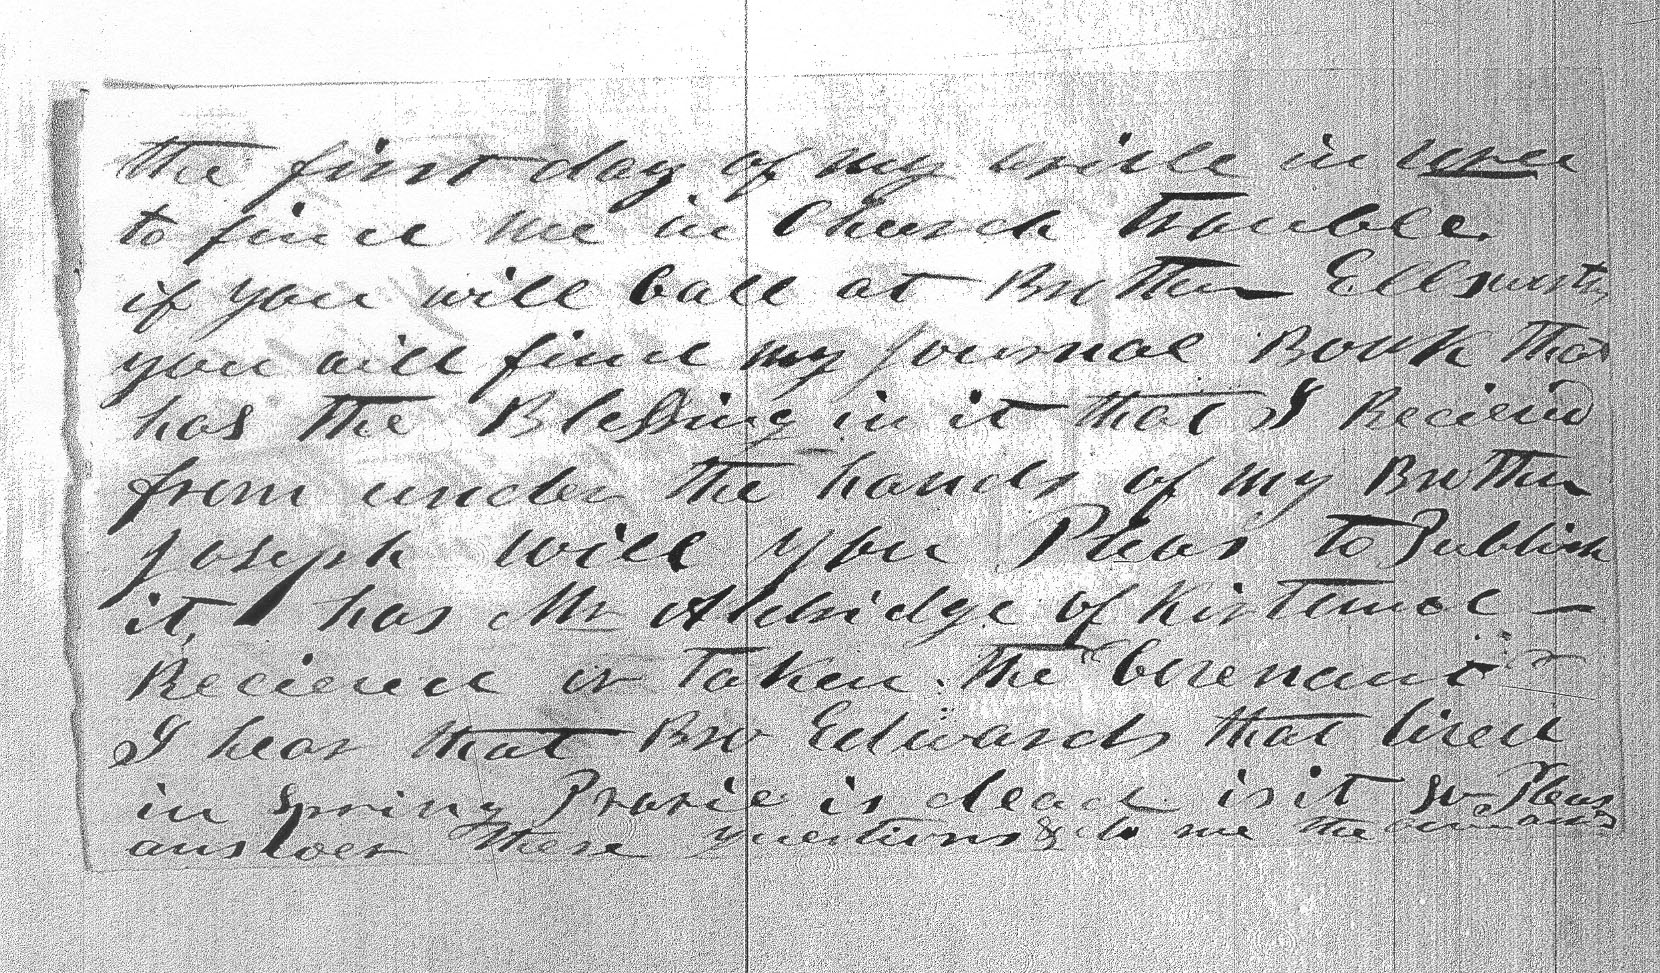 the first day of my visite in
to find me in Church trouble.
if you will Call at Brother Ellsworth
you will find my Journal Book that
has the Blessing in it that I Recieved
from under the hands of my Brother
Joseph will you Pleas to Publish
it, has Mr Aldridge of Kirtland —
Recieved or taken the Covenant
I hear that Bro Edwards that lived
in Spring Prarie is dead is it so Pleas
answer these questions & to me the